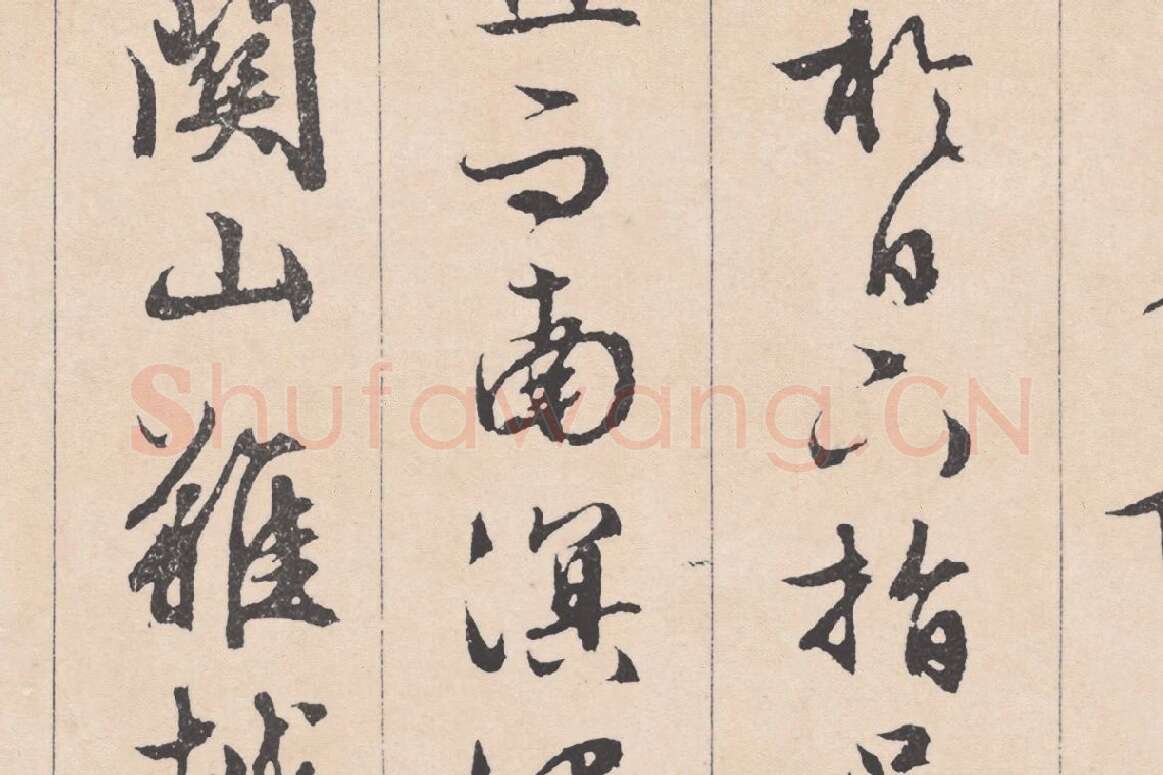 於日下指
而南溟
關山難越
Shufawang.CN